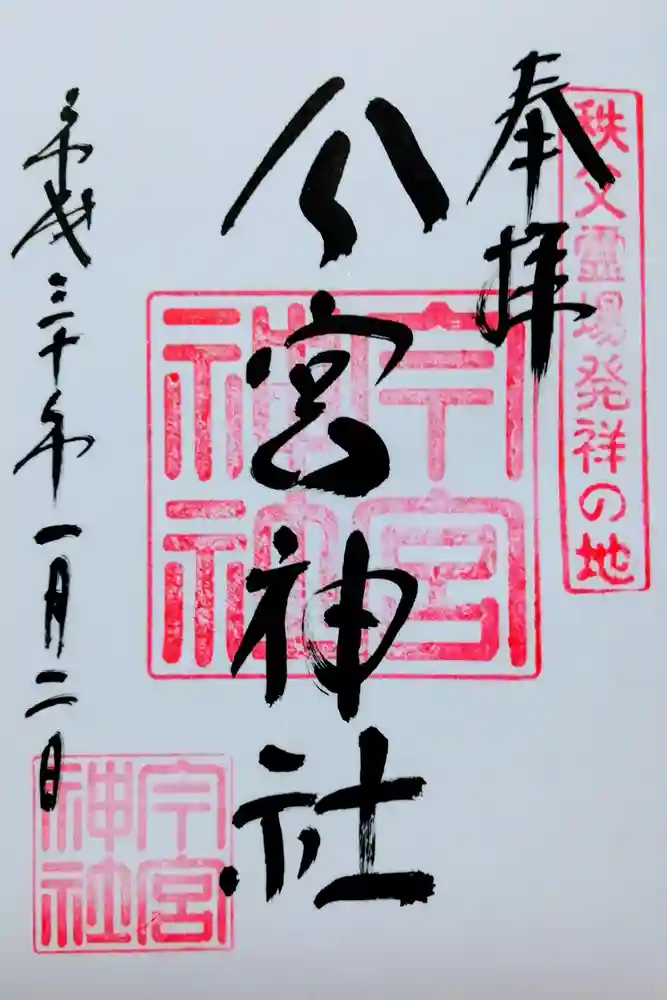 奉拝
秩父霊場発祥の地
今宮神社
今宮神社
平成三十年一月二日
今宮神社